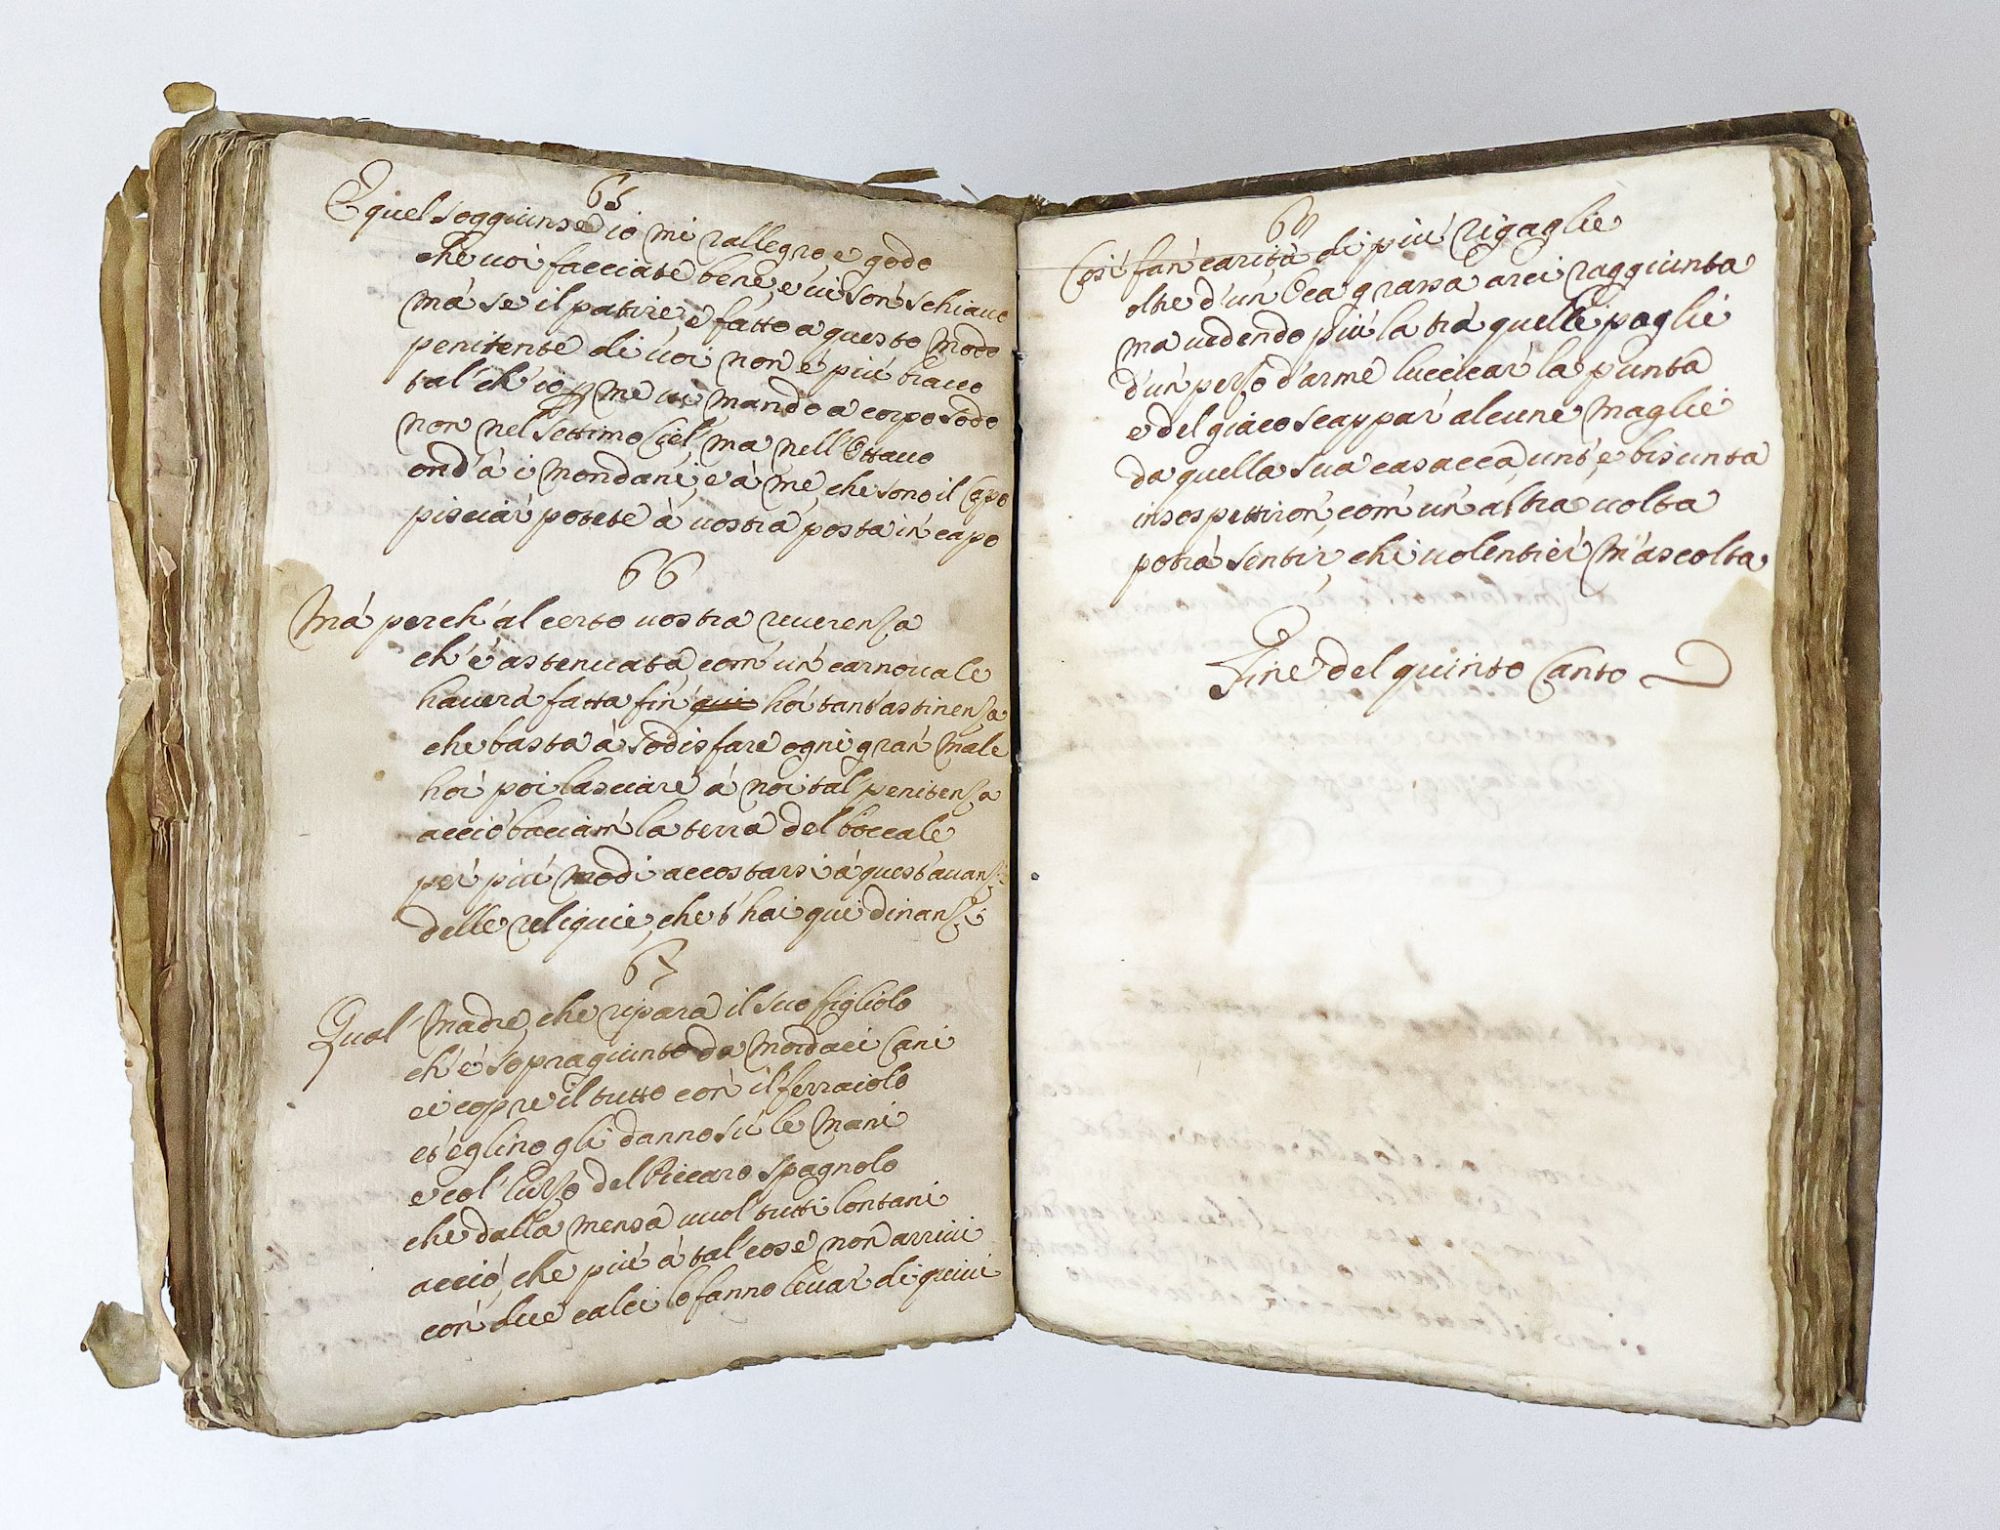 65
E quel soggiunse io mi rallegro e godo
che voi facciate bene, e vi son' schiavo
mà se il patire, è fatto a questo modo
penitente di voi non è più bravo
tal' ch' io me vi mando a corpo sodo
non nel settimo Ciel', ma nell'Ottavo
ond' à i mondani, e à me, che sono il Capo
pisciar' potete à vostra posta in capo
66
Mà perch' al certo vostra reverenza
ch' è astenuata, com' un' carnovale
haverà fatta fin' qui hor' tant'astinenza
che basta à sodisfare ogni gran' male
hor' poi lasciare à noi tal penitenza
acciò bacciam' la terra del boccale
per' più modi accostarsi à quest'avanzi
delle reliquie, che t' hai qui dinanzi
67
Qual' Madre, che ripara il suo figliolo
ch' è sopragiunto da mordaci Cani
ei copre il tutto con' il ferraiolo
et eglino gli danno sù le mani
e col' lurzo del Piccaro spagnolo
che dalla mensa vuol' tutti lontani
acciò, che più à tal' cose non arrivi
con' due calci lo fanno levar' di quivi
68
Così fan' carità di più rigaglie
oltre d'un' Oca grassa arci raggiunta
ma vedendo più la trà quelle paglie
d'un' pezzo d'arme luccicar' la punta
e del giaco scappar' alcune maglie
da quella sua casacca unt', e bisunta
insospettiron', com' un' altra volta
potrà sentir', chi volentier' m'ascolta.
Fine del quinto Canto